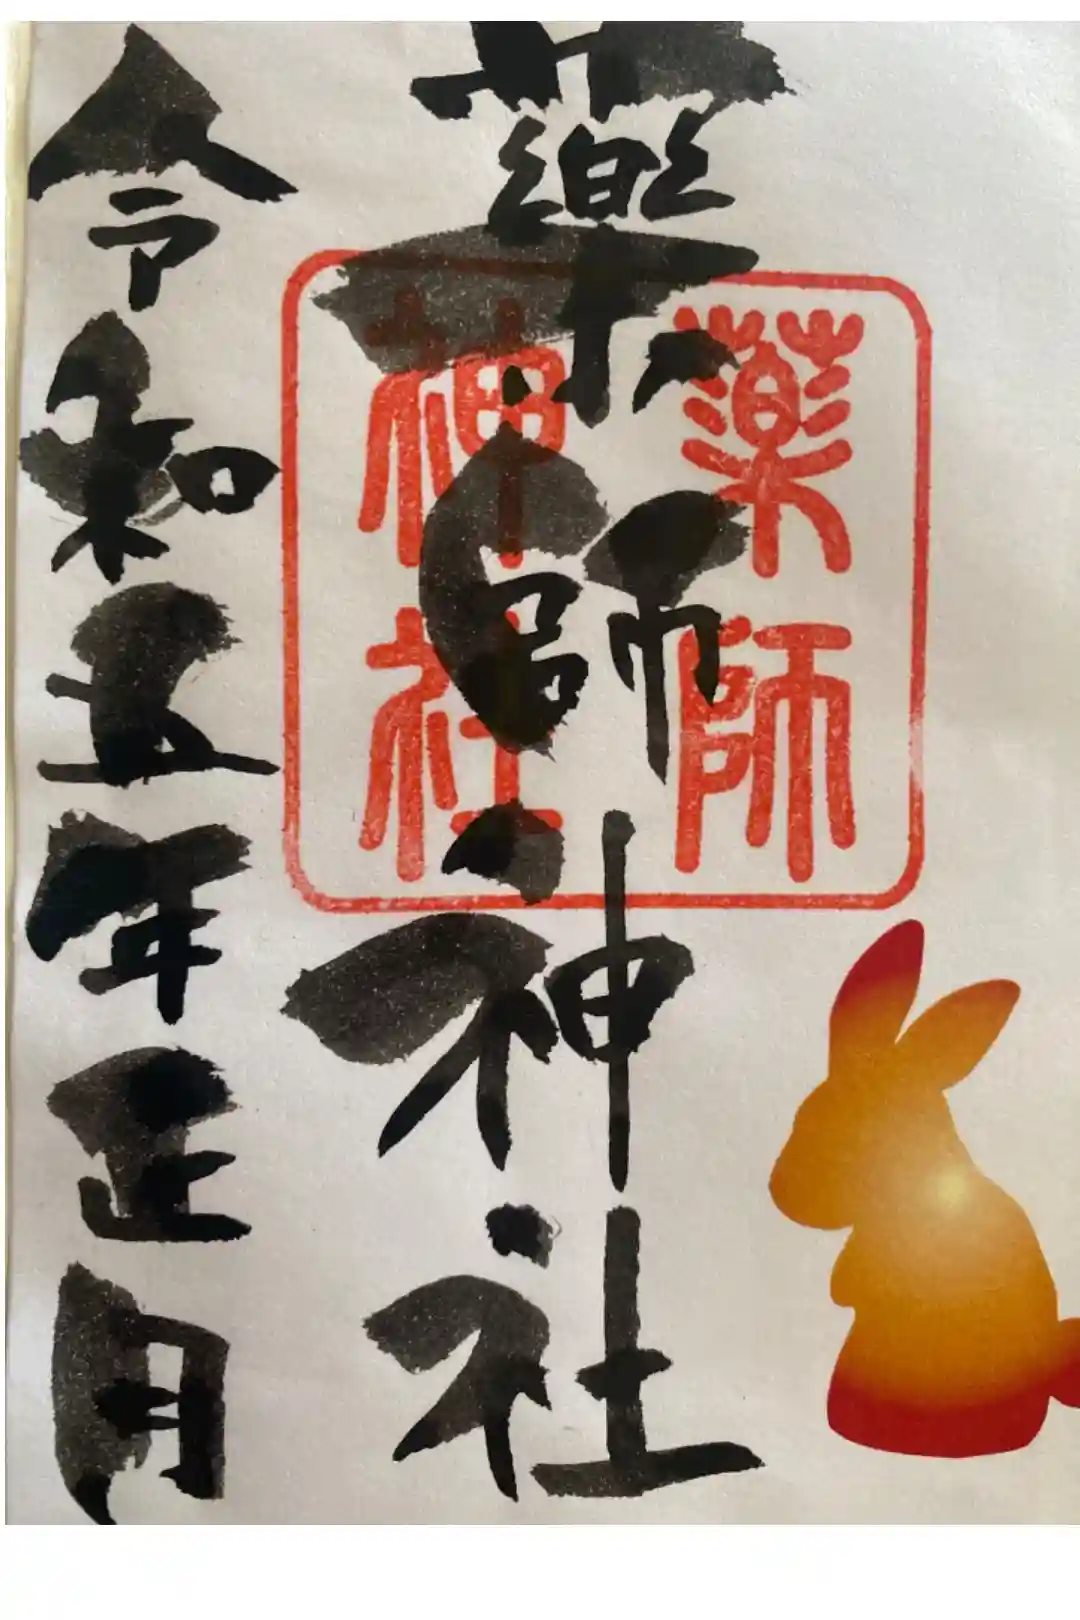 薬師神社
令和五年正月
薬師
神社